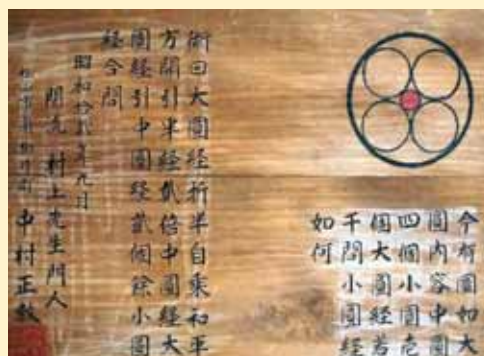 今有圓如大
圓内容中圓
四個小圓壱
個大圓経若
干問小圓経
如何
術曰大圓経折半自乗和平
方開引半経貳倍中圓経大
圓経引中圓経貳個餘小圓
経合問
昭和拾貳年九月
関流 村上先生門人
中村正教